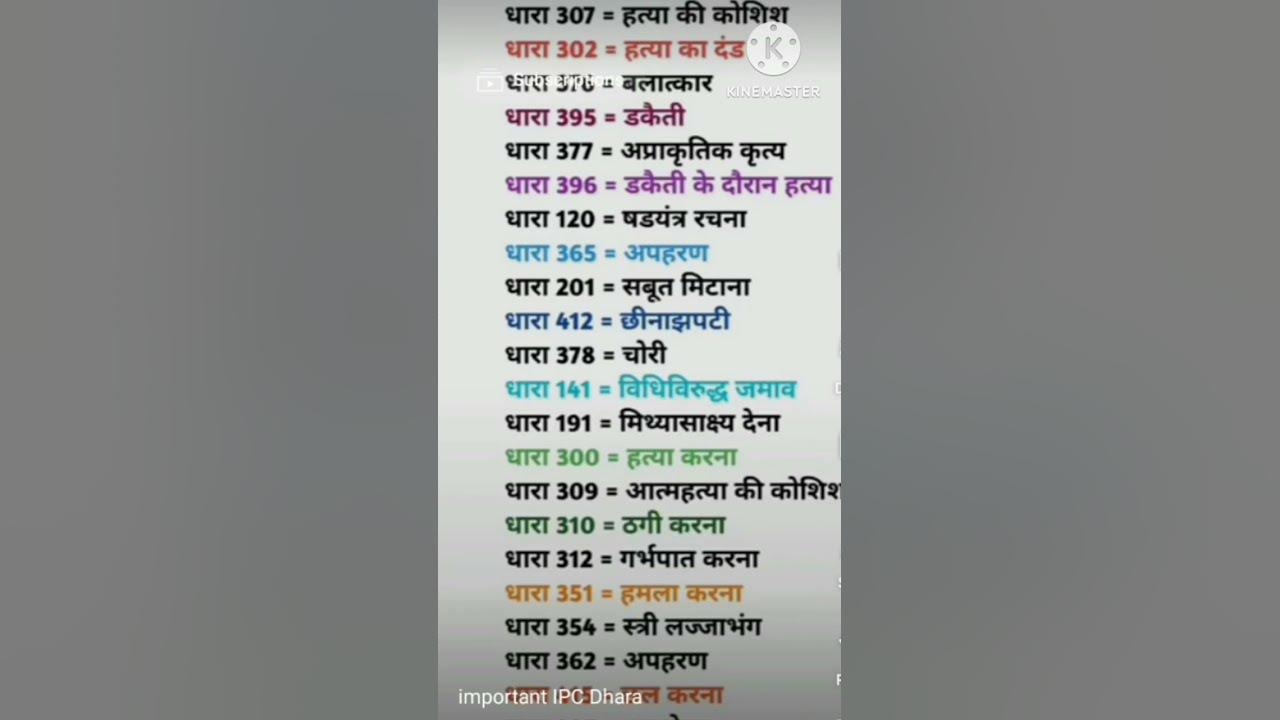 धारा 307 = हत्या की कोशिश
धारा 302 = हत्या का दंड
धारा = बलात्कार
Subscriptions
KINEMASTER
धारा 395 = डकैती
धारा 377 = अप्राकृतिक कृत्य
धारा 396 = डकैती के दौरान हत्या
धारा 120 = षडयंत्र रचना
धारा 365 = अपहरण
धारा 201 = सबूत मिटाना
धारा 412 = छीनाझपटी
धारा 378 = चोरी
धारा 141 = विधिविरुद्ध जमाव
धारा 191 = मिथ्यासाक्ष्य देना
धारा 300 = हत्या करना
धारा 309 = आत्महत्या की कोशिश
धारा 310 = ठगी करना
धारा 312 = गर्भपात करना
धारा 351 = हमला करना
धारा 354 = स्त्री लज्जाभंग
धारा 362 = अपहरण
करना
important IPC Dhara